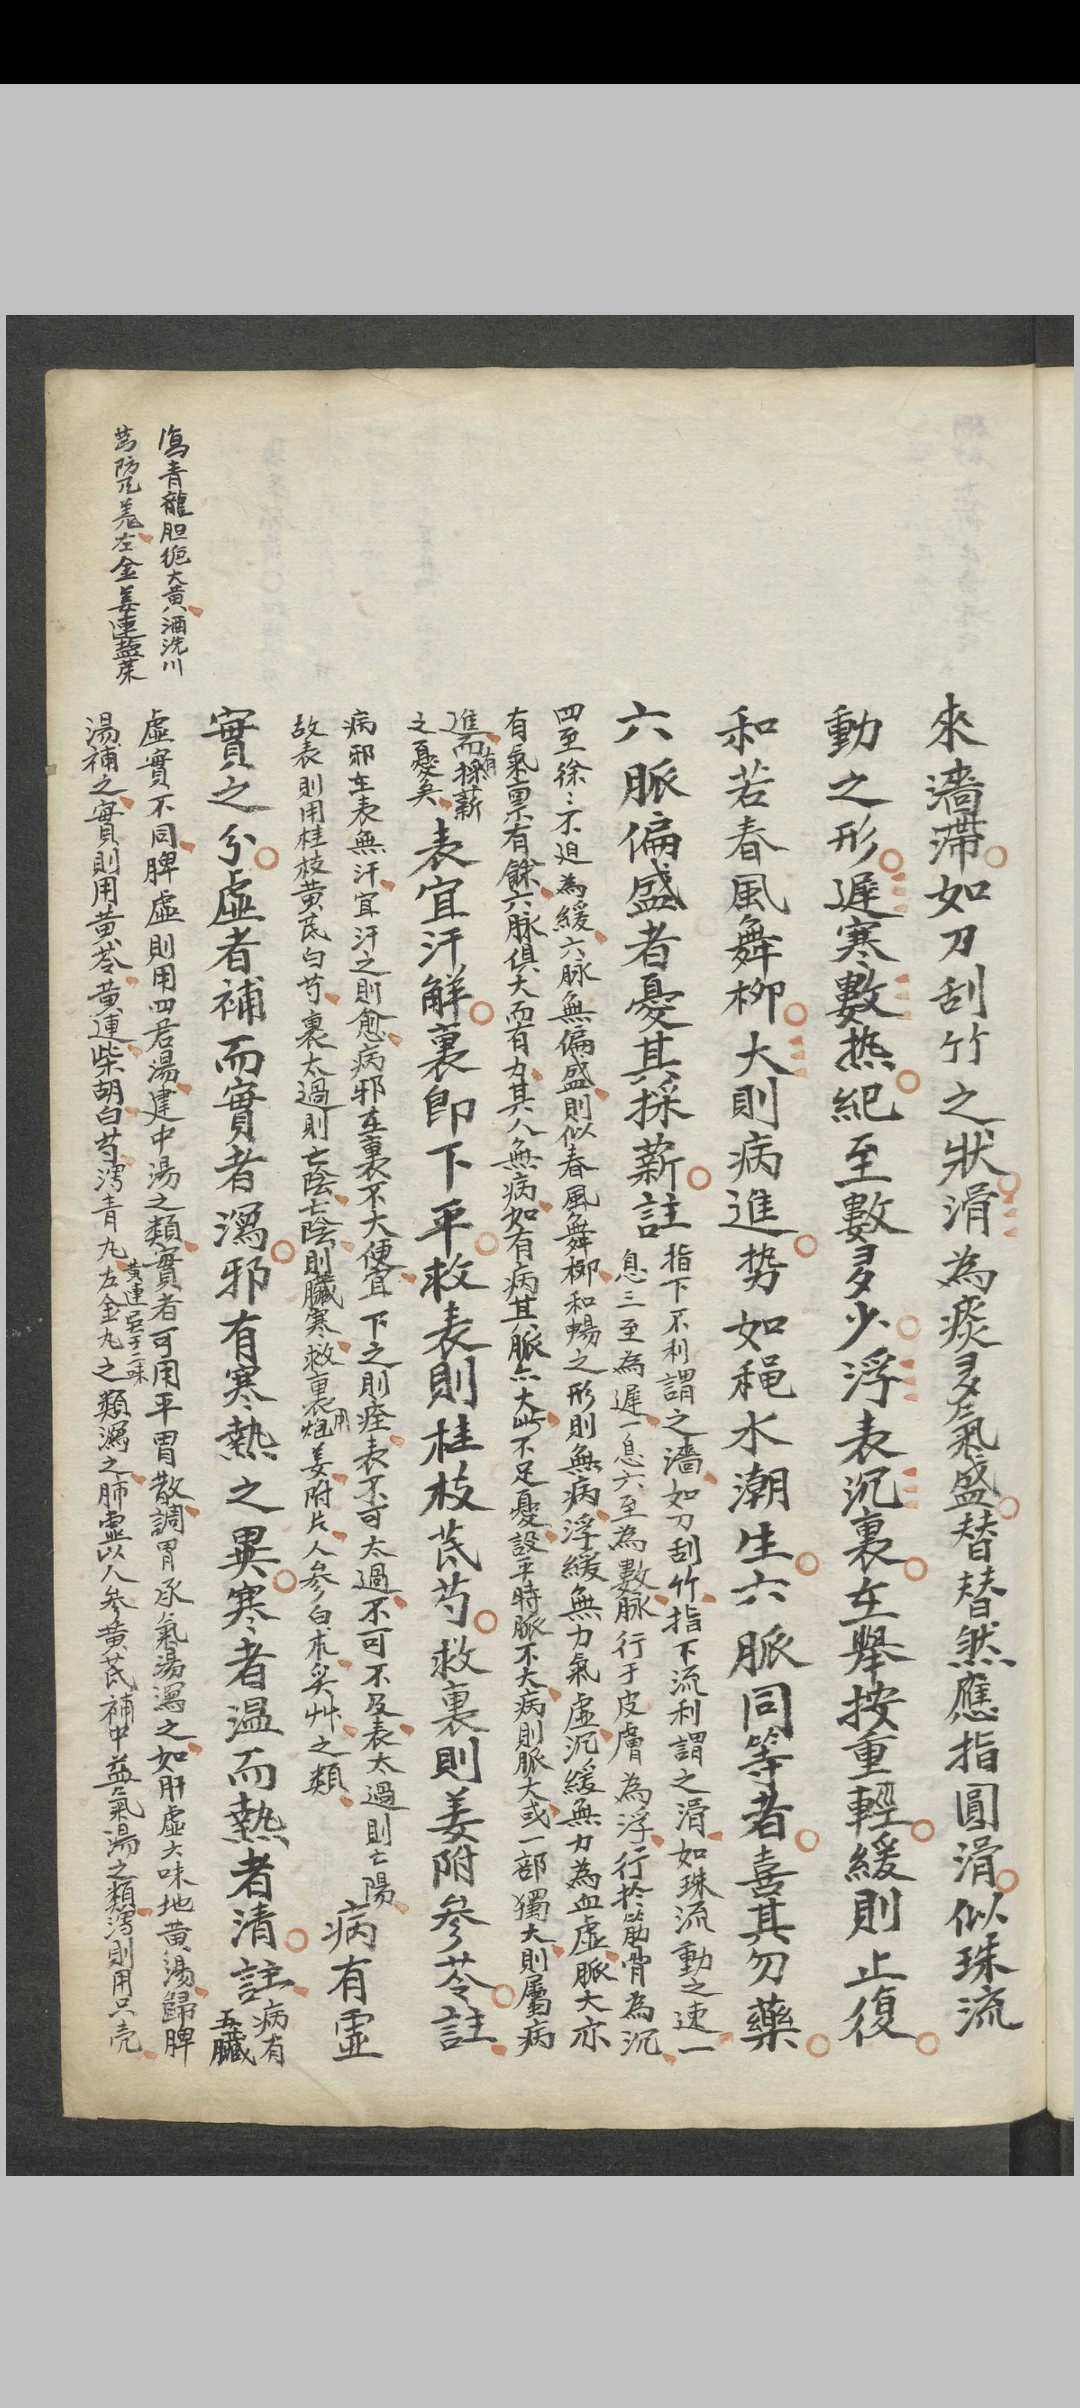 來濇滯如刀刮竹之狀滑為痰多氣盛替替然應指圓滑似珠流
動之形遲寒數热紀至數多少浮表沉裏在舉按重輕緩則止復
和若春風舞柳大則病進势如穐水潮生六脈同等者喜其勿藥
六脈偏盛者憂其採薪註
指下不利謂之濇如刀刮竹指下流利謂之滑如珠流動之速一
息三至為遲一息六至為數脉行于皮膚為浮行於筋骨為沉
四至徐〻不迫為緩六脉無偏盛則似春風舞柳和暢之形則無病浮緩無力氣虛沉緩無力為血虛脈大亦
有氣稟有餘六脉俱大而有力其人無病如有病其脈亦大此不足憂設平時脈不大病則脈大或一部獨大則屬病
進而有採薪
之憂矣
表宜汗解裏即下平救表則桂枝芪芍救裏則姜附參苓註
病邪在表無汗宜汗之則愈病邪在裏不大便宜下之則痊表不可太過不可不及表太過則亡陽
故表則用桂枝黄芪白芍裏太過則亡陰亡陰則臟寒救裏用炮姜附片人參白朮炙艸之類
病有虛
實之分虛者補而實者瀉邪有寒熱之異寒者温而熱者清註
病有
五臟
虛實不同脾虛則用四君湯建中湯之類實者可用平胃散調胃承氣湯瀉之如肝虛六味地黄湯歸脾
湯補之實則用黄芩黄連柴胡白芍瀉青九左金九之類瀉之肺虛以人參黄芪補中益氣湯之類瀉則用只壳
黄連吳于二味
瀉青龍胆梔大黄酒洗川
芎防风羌左金姜連鹽茱